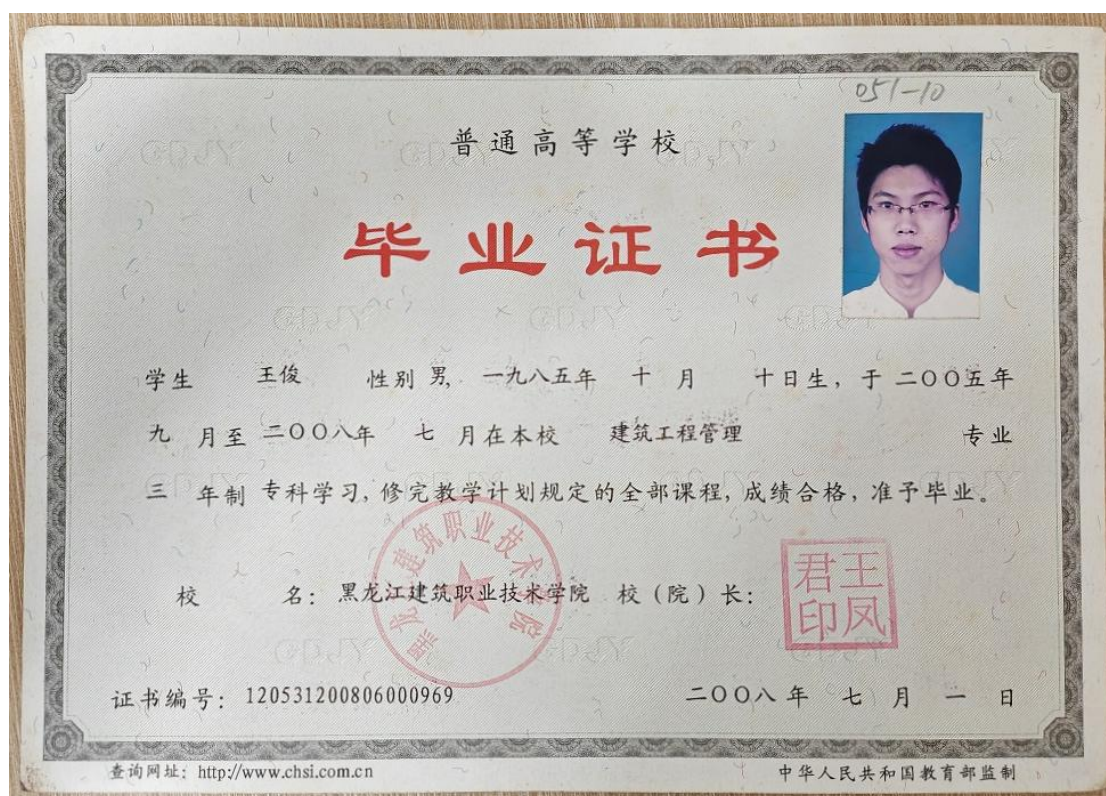 051-10
普通高等学校
毕业证书
学生 王俊 性别 男, 一九八五年 十 月 十日生, 于 二〇〇五年
九 月至 二〇〇八年 七 月在本校 建筑工程管理 专业
三 年制 专科学习, 修完教学计划规定的全部课程, 成绩合格, 准予毕业。
黑龙江建筑职业技术学院
校 名: 黑龙江建筑职业技术学院 校(院)长:
王凤君印
证书编号: 120531200806000969 二〇〇八年 七 月 一 日
查询网址: http://www.chsi.com.cn 中华人民共和国教育部监制